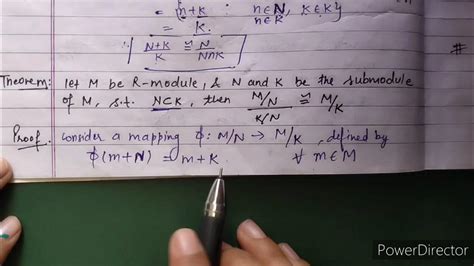 = {n+k : n∈N, k∈K}
n∈K
= K.
∴ N+K/K ≅ N/N∩K
#
Theorem: let M be R-module, & N and K be the submodule
of M, s.t. N⊂K, then (M/N)/(K/N) ≅ M/K
Proof. Consider a mapping ϕ: M/N → M/K, defined by
ϕ(m+N) = m+K ∀ m∈M
PowerDirector